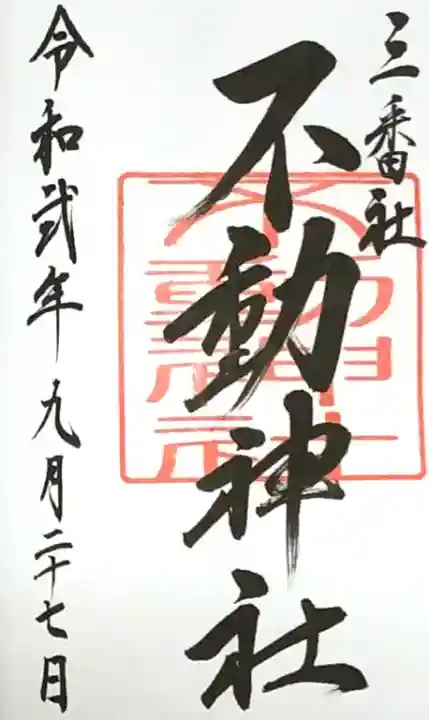 三番社
不動神社
不動神社
令和弐年九月二十七日